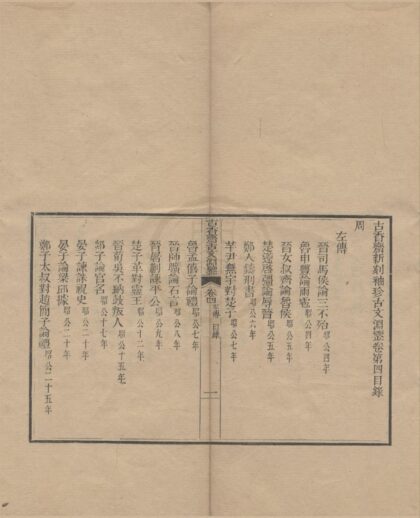 古香齋新刻袖珍古文淵鑒卷第四目錄
周
左傳
晉司馬侯論三不殆 昭公四年
魯申豐論雨雹 昭公四年
晉女叔齊論魯侯 昭公五年
楚薳啓彊論辱晉 昭公五年
鄭人鑄刑書 昭公六年
芋尹無宇對楚子 昭公七年
古香齋古文淵鑒 卷四 左傳 目錄 一
魯孟僖子論禮 昭公七年
晉師曠論石言 昭公八年
晉屠蒯諫平公 昭公九年
楚子革對靈王 昭公十二年
晉荀吳不納叛人 昭公十五年
郯子論官名 昭公十七年
晏子諫誅祝史 昭公二十年
晏子論梁邱據 昭公二十年
鄭子太叔對趙簡子論禮 昭公二十五年